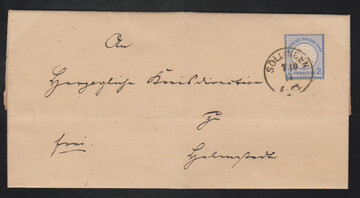 An
Herzogliche Kreisdirection
zu
frei. Helmstedt
SÖLLINGEN
2